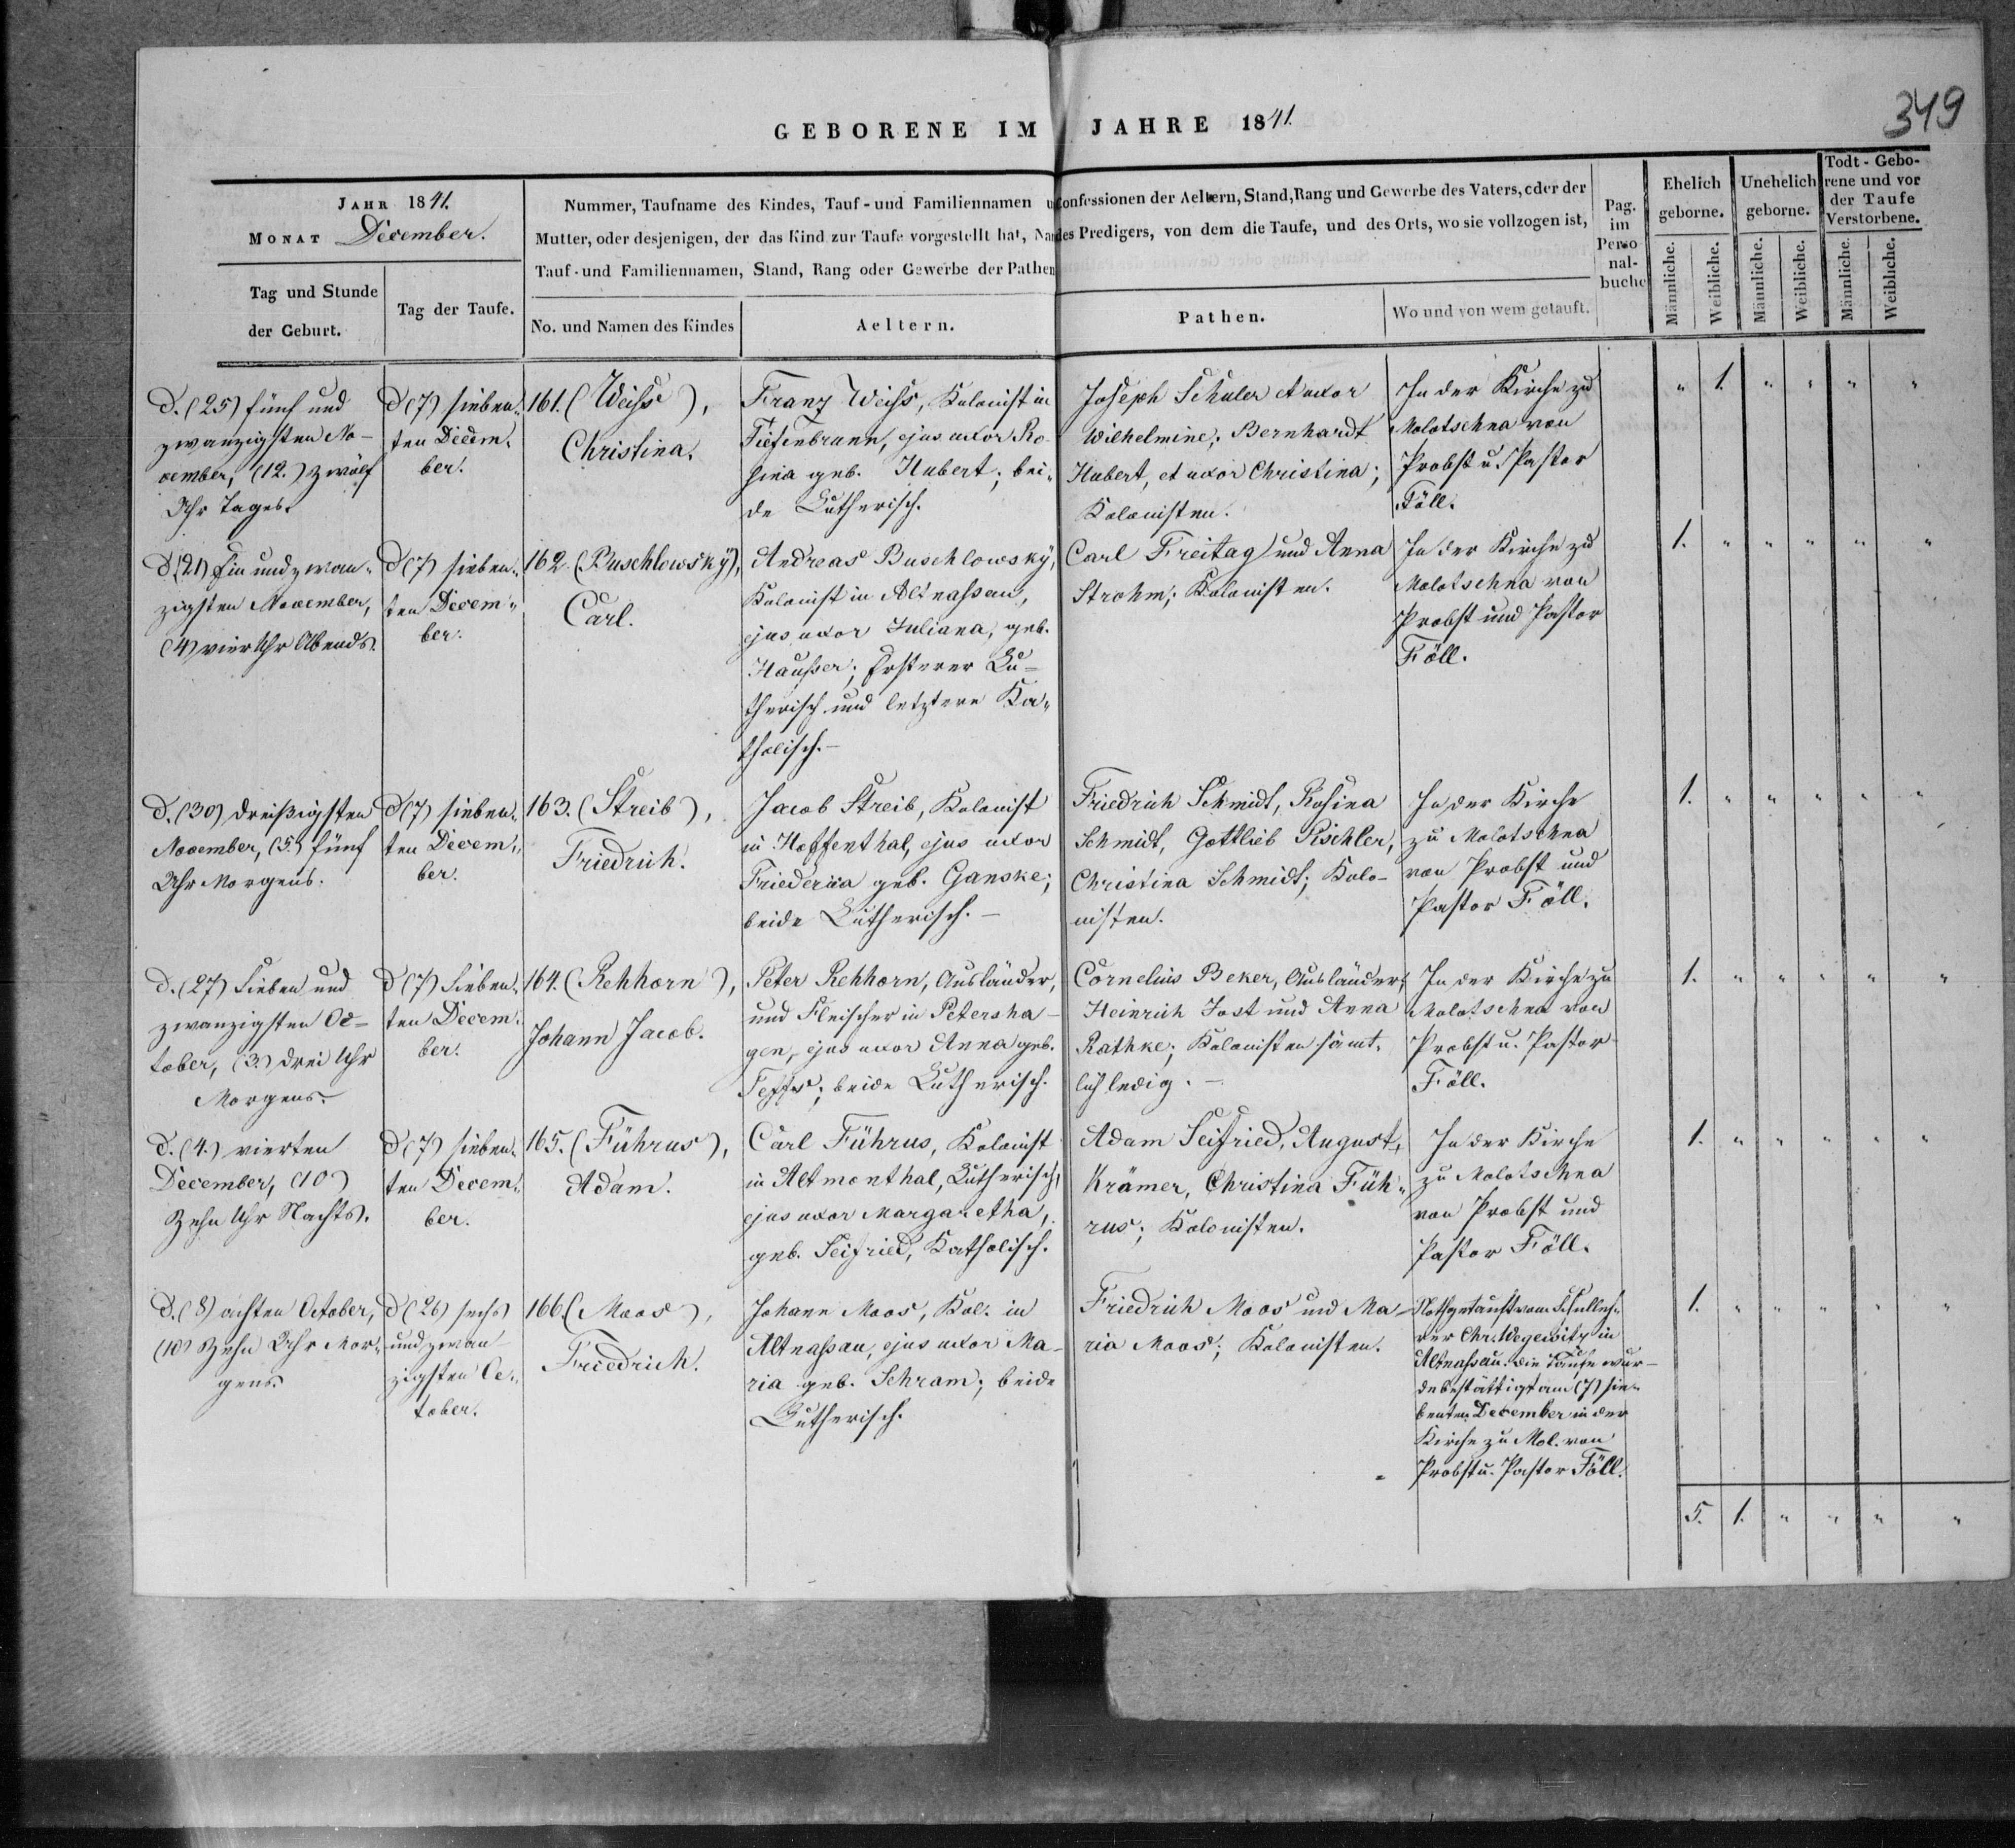 349
GEBORENE IM JAHRE 1841.
JAHR 1841.
MONAT December.
Tag und Stunde
der Geburt.
Tag der Taufe.
Nummer, Taufname des Kindes, Tauf- und Familiennamen u Confessionen der Aeltern, Stand, Rang und Gewerbe des Vaters, oder der
Mutter, oder desjenigen, der das Kind zur Taufe vorgestellt hat, Namen des Predigers, von dem die Taufe, und des Orts, wo sie vollzogen ist,
Tauf- und Familiennamen, Stand, Rang oder Gewerbe der Pathen
No. und Namen des Kindes
Aeltern.
Pathen.
Wo und von wem getauft.
Pag.
im
Perso
nal-
buche
Ehelich
geborne.
Unehelich
geborne.
Todt-Gebo-
rene und vor
der Taufe
Verstorbene.
Männliche.
Weibliche.
Männliche.
Weibliche.
Männliche.
Weibliche.
d. (25) fünf und
zwanzigsten No-
vember, (12.) zwölf
Uhr Tages.
d (7) sieben-
ten Decem-
ber.
161. (Weiss),
Christina.
Franz Weiss, Kolonist in
Tiefenbrunn, ejus uxor Ro-
sina geb. Hubert; bei-
de Lutherisch.
Joseph Schuler et uxor
Wilhelmine; Bernhardt
Hubert, et uxor Christina;
Kolonisten.
In der Kirche zu
Molotschna von
Probst u. Pastor
Föll.
" 1. " " " "
d (21) Ein und zwan-
zigsten November,
(4) vier Uhr Abends.
d (7) sieben-
ten Decem-
ber.
162. (Buschlowsky),
Carl.
Andreas Buschlowsky,
Kolonist in Altnassau,
ejus uxor Juliana, geb.
Hausser; Ersterer Lu-
therisch und letztere Ka-
tholisch.-
Carl Freitag und Anna
Strohm; Kolonisten.
In der Kirche zu
Molotschna von
Probst und Pastor
Föll.
1. " " " " "
d. (30) dreißigsten
November, (5.) fünf
Uhr Morgens.
d (7) sieben-
ten Decem-
ber.
163. (Streib),
Friedrich.
Jacob Streib, Kolonist
in Hoffenthal, ejus uxor
Friederica geb. Ganske;
beide Lutherisch.-
Friedrich Schmidt, Rosina
Schmidt, Gottlieb Pischler,
Christina Schmidt; Kolo-
nisten.
In der Kirche
zu Molotschna
von Probst und
Pastor Föll.
1. " " " " "
d. (27) Sieben und
zwanzigsten Oc-
tober, (3.) drei Uhr
Morgens.
d (7) Sieben-
ten Decem-
ber.
164. (Rehhorn),
Johann Jacob.
Peter Rehhorn, Ausländer,
und Fleischer in Petersha-
gen, ejus uxor Anna geb.
beide Lutherisch.
Cornelius Beker, Ausländer;
Heinrich Jost und Anna
Rathke; Kolonisten sämt-
lich ledig.-
In der Kirche zu
Molotschna von
Probst u. Pastor
Föll.
1. " " " " "
d. (4.) vierten
December, (10)
Zehn Uhr Nachts.
d (7) sieben-
ten Decem-
ber.
165. (Führus),
Adam.
Carl Führus, Kolonist
in Altmonthal, Lutherisch,
ejus uxor Margaretha,
geb. Seifried, Katholisch.
Adam Seifried, August
Krämer, Christina Füh-
rus; Kolonisten.
In der Kirche
zu Molotschna
von Probst und
Pastor Föll.
1. " " " " "
d. (8) achten October,
(10) Zehn Uhr Mor-
gens.
d (26) sechs
und zwan-
zigsten Oc-
tober.
166. (Moos),
Friedrich.
Johann Moos, Kol. in
Altnassau, ejus uxor Ma-
ria geb. Schram; beide
Lutherisch.
Friedrich Moos und Ma-
ria Moos; Kolonisten.
Nothgetauft vom Schulleh-
rer Chr. in
Altnassau. Die Taufe wur-
de bestättigt am (7) sie-
benten December in der
Kirche zu Mol. von
Probst u. Pastor Föll.
1. " " " " "
5. 1. " " " "